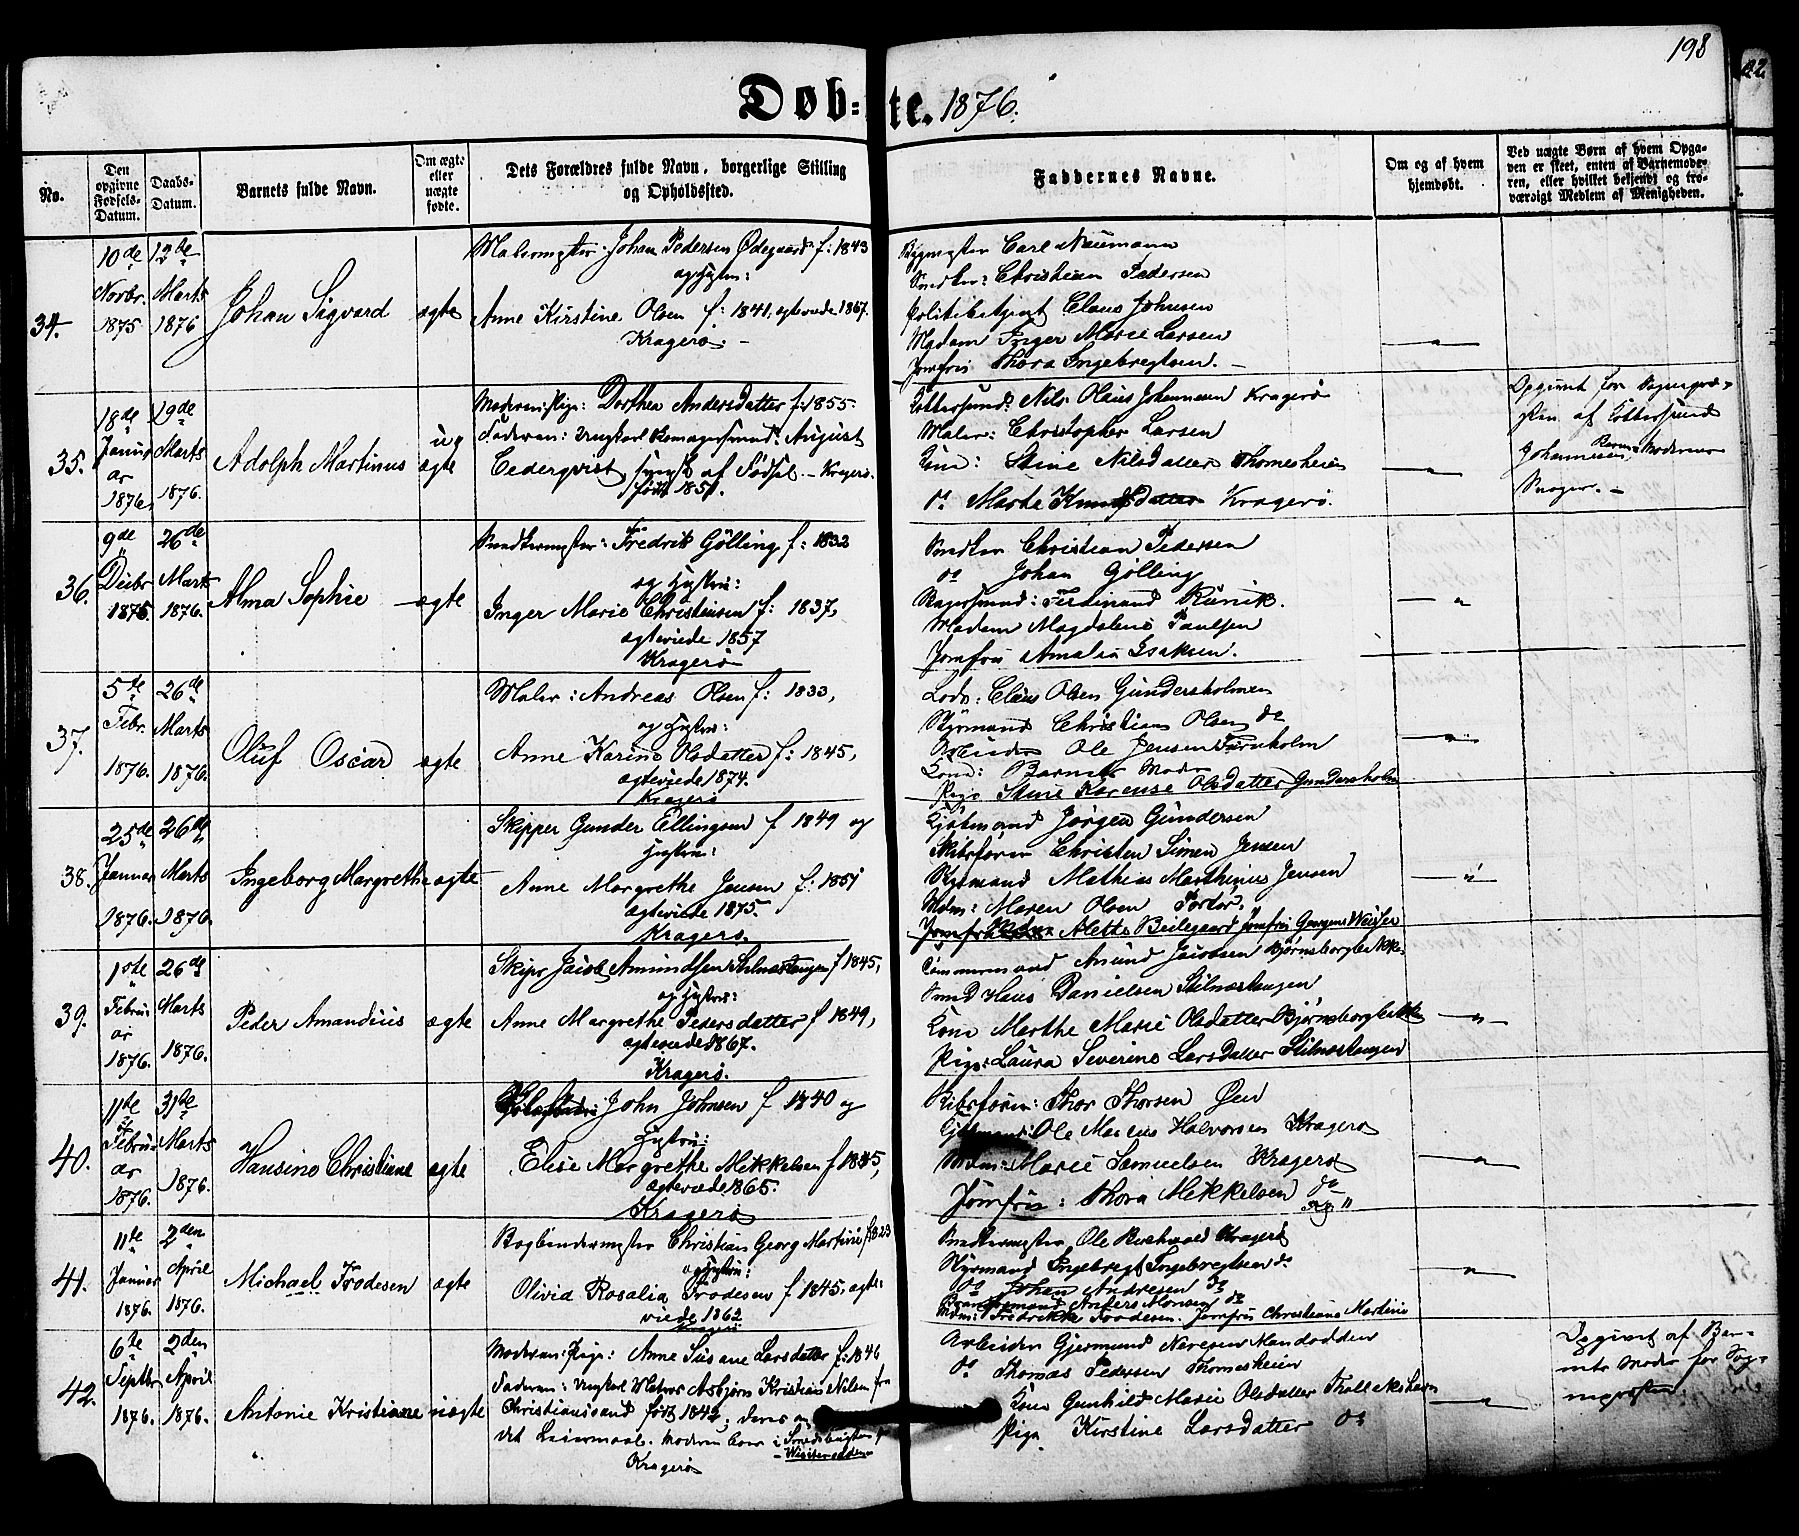 198
Døb=te. 1876.
No.
Den opgivne Fødsels-Datum.
Daabs-Datum.
Barnets fulde Navn.
Om ægte eller uægte fødte.
Dets Forældres fulde Navn, borgerlige Stilling og Opholdssted.
Faddernes Navne.
Om og af hvem hjemdøbt.
Ved uægte Børn af hvem Opgaven er skeet, enten af Barnemoderen, eller hvilket bekjendt og troværdigt Medlem af Menigheden.
34.
10de Novbr. 1875
12de Marts 1876
Johan Sigvard
ægte
Malermester Johan Pedersen Ødegaard f: 1843
og Hustru:
Anne Kirstine Olsen f: 1841, ægteviede 1867.
Kragerø. -
Carl Neumann
Snedker: Christian Pedersen
Politibetjent Claus Johnsen
Madam Inger Marie Larsen
Jomfru Thora Ingebregtsen. -
35.
18de Januar 1876.
19de Marts 1876.
Adolph Martinus
uægte
Moderen: Pige: Dorthea Andersdatter f: 1855.
Faderen: Ungkarl August
Cederqvist svensk af Fødsel - Kragerø.
født 1851.
Nils Olaus Johannesen Kragerø
Maler: Christopher Larsen
Kone: Stine Nilsdatter Thomesheien
do Marthe Knudsdatter Kragerø.
Opgivet for Sognepræsten af Johannesen, Moderens Svoger. -
36.
9de Decbr 1875.
26de Marts 1876.
Alma Sophie
ægte
Snedkermester: Fredrik Gölling f: 1832
og Hustru:
Inger Marie Christensen f: 1837,
ægteviede 1857
Kragerø
Snedker Christian Pedersen
do Johan Gölling
Bagersvend: Ferdinand
Madam Magdalene Paulsen
Jomfru Amalia Isaksen.
37.
5te Febr. 1876.
26de Marts 1876.
Oluf Oscar
ægte
Maler: Andreas Olsen f: 1833,
og Hustru:
Anne Karine Olsdatter f: 1845,
ægteviede 1874.
Kragerø
Lods: Claus Olsen Gundersholmen
Styrmand Christian Olsen do
Arbeider Ole Jensen Furuholm
Kone: Barnets Moder
Pige Stine Karense Olsdatter Gundersholm
38.
25de Januar 1876.
26de Marts 1876.
Ingeborg Margrethe
ægte
Skipper Gunder Ellingsen f 1849 og
Hustru:
Anne Margrethe Jensen f: 1851
ægteviede 1875.
Kragerø.
Kjøbmand Jørgen Gundersen
Skibsfører Christen Simen Jensen
Styrmand Mathias Marthinius Jensen
Mdm: Maren Olsen Portør.
Jomfru Alette Beilegaard
39.
1ste Februar 1876.
26de Marts 1876.
Peder Amandius
ægte
Skipr Jacob Amundsen Stilnestangen f 1845,
og Hustru:
Anne Margrethe Pedersdatter f 1849,
ægteviede 1867.
Kragerø.
Tømmermand Anund Jacobsen Bjørnsborgbakke.
Hans Danielsen Stilnestangen
Kone Marthe Marie Olsdatter Bjørnsborgbakke
Pige: Laura Severine Larsdatter Stilnestangen
40.
11te Februar 1876.
31te Marts 1876.
Hansine Christiane
ægte
John Johnsen f 1840 og
Hustru:
Elise Margrethe Mikkelsen f 1845,
ægteviede 1865.
Kragerø
Skibsfører: Thor Thorsen Øen
Ole Marius Halvorsen Kragerø
Mdm: Marie Samuelsen Kragerø
Jomfru: Thora Mikkelsen do
41.
11te Januar 1876.
2den April 1876.
Michael Frodesen
ægte
Bogbindermester Christian Georg Martini f 1823
og Hustru:
Olivia Rosalia Frodesen f 1845, ægteviede 1862
Kragerø
Snedkermester Ole Kragerø
Styrmand Ingebregt Ingebregtsen do
do Johan Andresen do
Anders Monsen do
Mdm: Fredrikke Frodesen. Jomfru Christiane Martini
42.
6te Septbr 1876.
2den April 1876.
Antonie Kristiane
uægte
Moderen: Pige: Anne Susane Larsdatter f: 1846
Faderen: Ungkarl Matros Asbjørn Kristian Nilsen fra
Christianssand født 1842, deres
det Leiermaal. Moderen boer i
Kragerø
Arbeider Gjermund
do Thomas Pedersen Thomesheien
Kone Gunhild Marie Olsdatter
Pige Kirstine Larsdatter do
Opgivet af Barnets Moder for Sognepræsten.